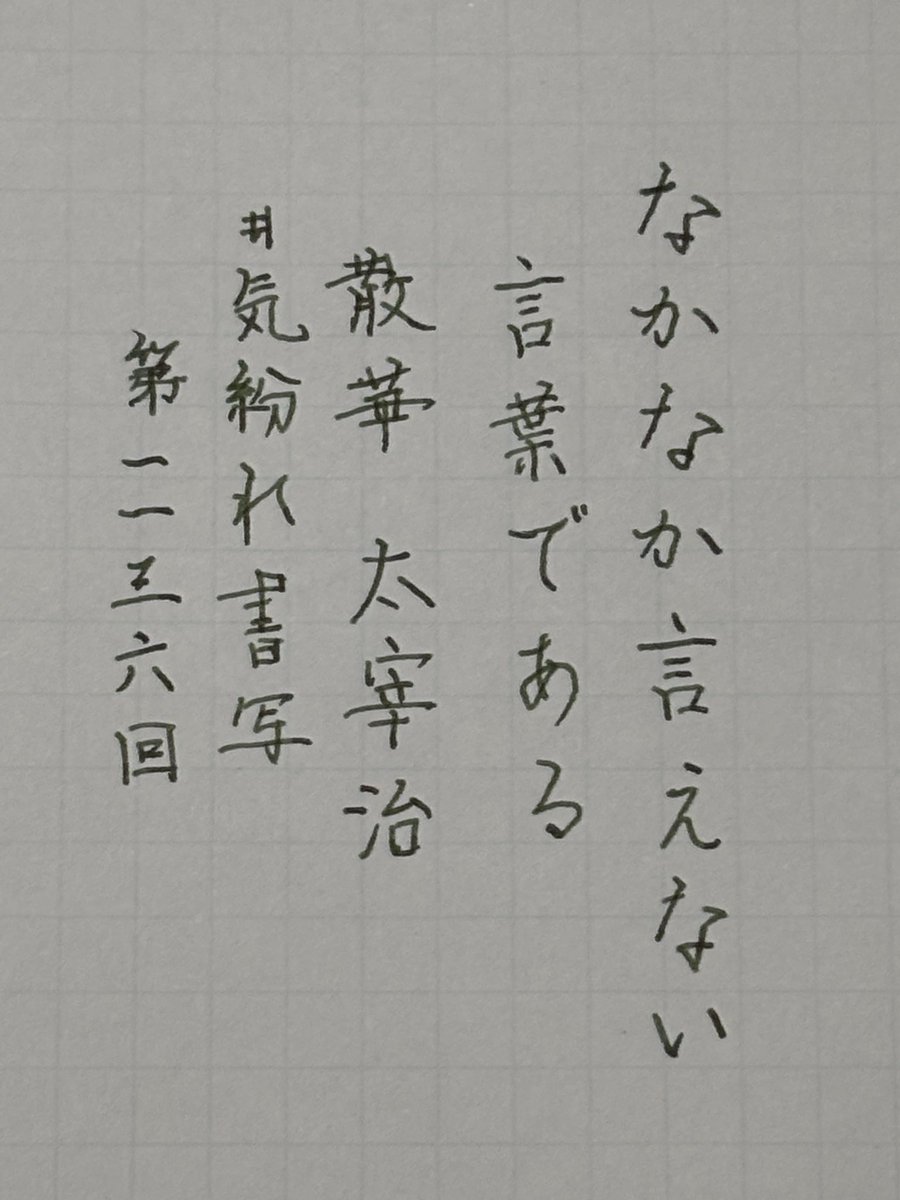 なかなか言えない
言葉である
散華 太宰治
#気紛れ書写
第一一三六回